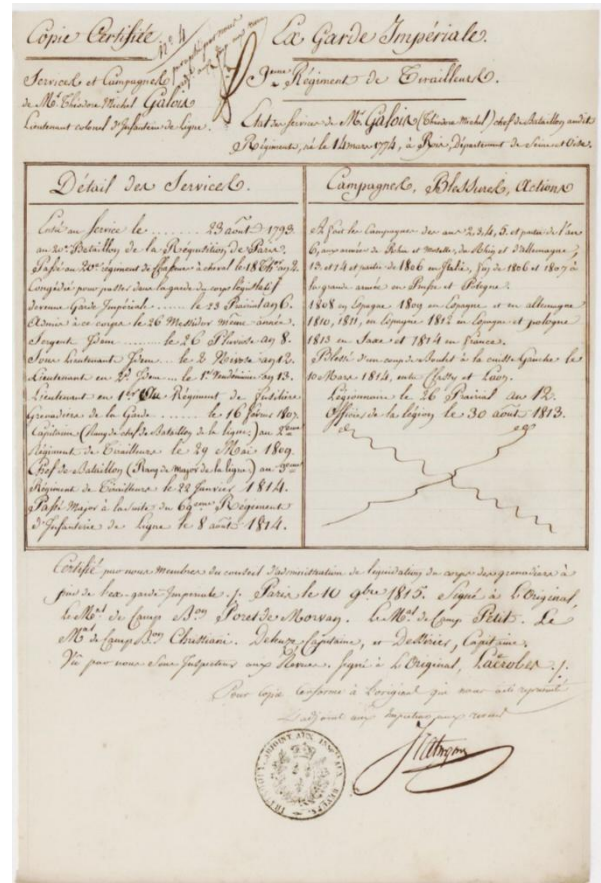 Copie Certifiée
N.° 4
Ex Garde Impériale.
Services et Campagnes
de M.r Théodore Michel Galois
Lieutenant colonel d'Infanterie de Ligne.
9eme Régiment de Tirailleurs.
Etat de service de M.r Galois (Théodore Michel) chef de Bataillon audit
Régiment, né le 14 mars 1774, à Département de Seine et Oise.
Détail des Services.
Entré au Service le ........ 23 août 1793
au Bataillon de la Réquisition, de Paris.
Passé au 20e régiment de chasseurs à cheval le 18
Congédié pour passer dans la garde du corps législatif
devenue Garde Impériale ...... le 23 Prairial an 6.
Admis à ce corps le 26 Messidor même année.
Sergent Idem ......... le 26 Pluviose an 8.
Sous Lieutenant Idem .... le 2 Nivose an 12.
Lieutenant en 2d Idem ... le 1er Vendémiaire an 13.
Lieutenant en 1er Régiment de fusiliers
Grenadiers de la Garde ...... le 16 février 1807.
Capitaine (Rang de chef de Bataillon de la ligne) au 2eme
Régiment de Tirailleurs le 29 Mai 1809.
Chef de Bataillon (Rang de major de la ligne) au
Régiment de Tirailleurs le 22 Janvier 1814.
Passé Major à la suite du 69eme Régiment
d'Infanterie de Ligne le 8 août 1814.
Campagnes, Blessures, Actions
A fait les Campagnes des ans 2, 3, 4, 5, et partie de l'an
6, aux armées de Rhin et Moselle, du Rhin et d'Allemagne,
13 et 14 et partie de 1806 en Italie, fin de 1806 et 1807 à
la grande armée en Prusse et Pologne.
1808 en Espagne 1809 en Espagne et en allemagne
1810, 1811, en Espagne 1812 en Espagne et pologne
1813 en Saxe et 1814 en France.
Blessé d'un coup de Boulet à la cuisse Gauche le
10 Mars 1814, entre et Laon.
Légionnaire le 26 Prairial an 12.
Officier de la légion le 30 août 1813.
Certifié par nous membres du conseil d'administration de liquidation du corps des grenadiers à
pied de l'ex-garde Imperiale. Paris le 10 9bre 1815. Signé à l'Original,
le M.al de Camp B.on Poret de Morvan. le M.al de Camp Petit. Le
M.al de Camp B.on Christiani. Deleuze Capitaine, et Capitaine.
Vu par nous Sous Inspecteur aux Revues. signé à l'Original,
Pour copie conforme à l'original qui nous a été représenté
L'adjoint aux Inspecteurs aux revues